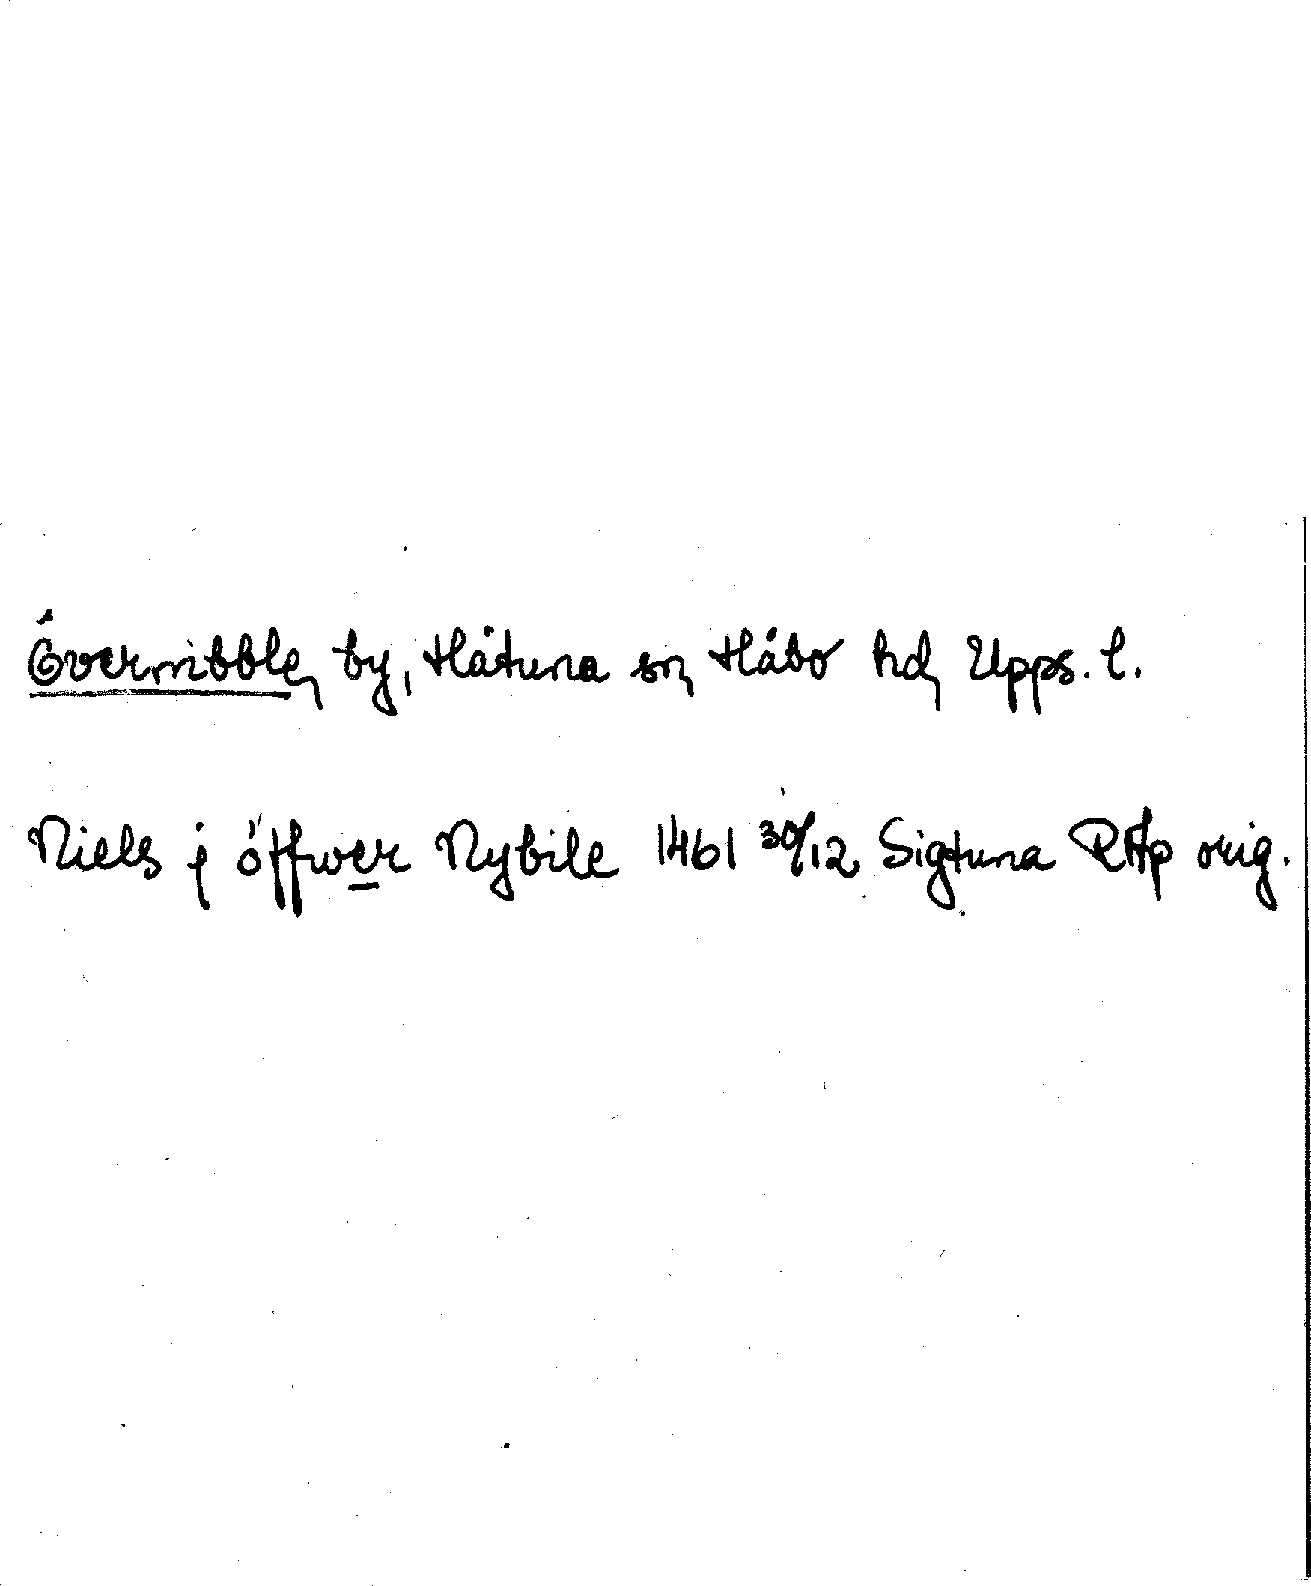 Övernibble, by, Håtuna sn, Håbo hd, Upps. l.
Niels j öffwer Nybile 1461 30/12 Sigtuna RAp orig.